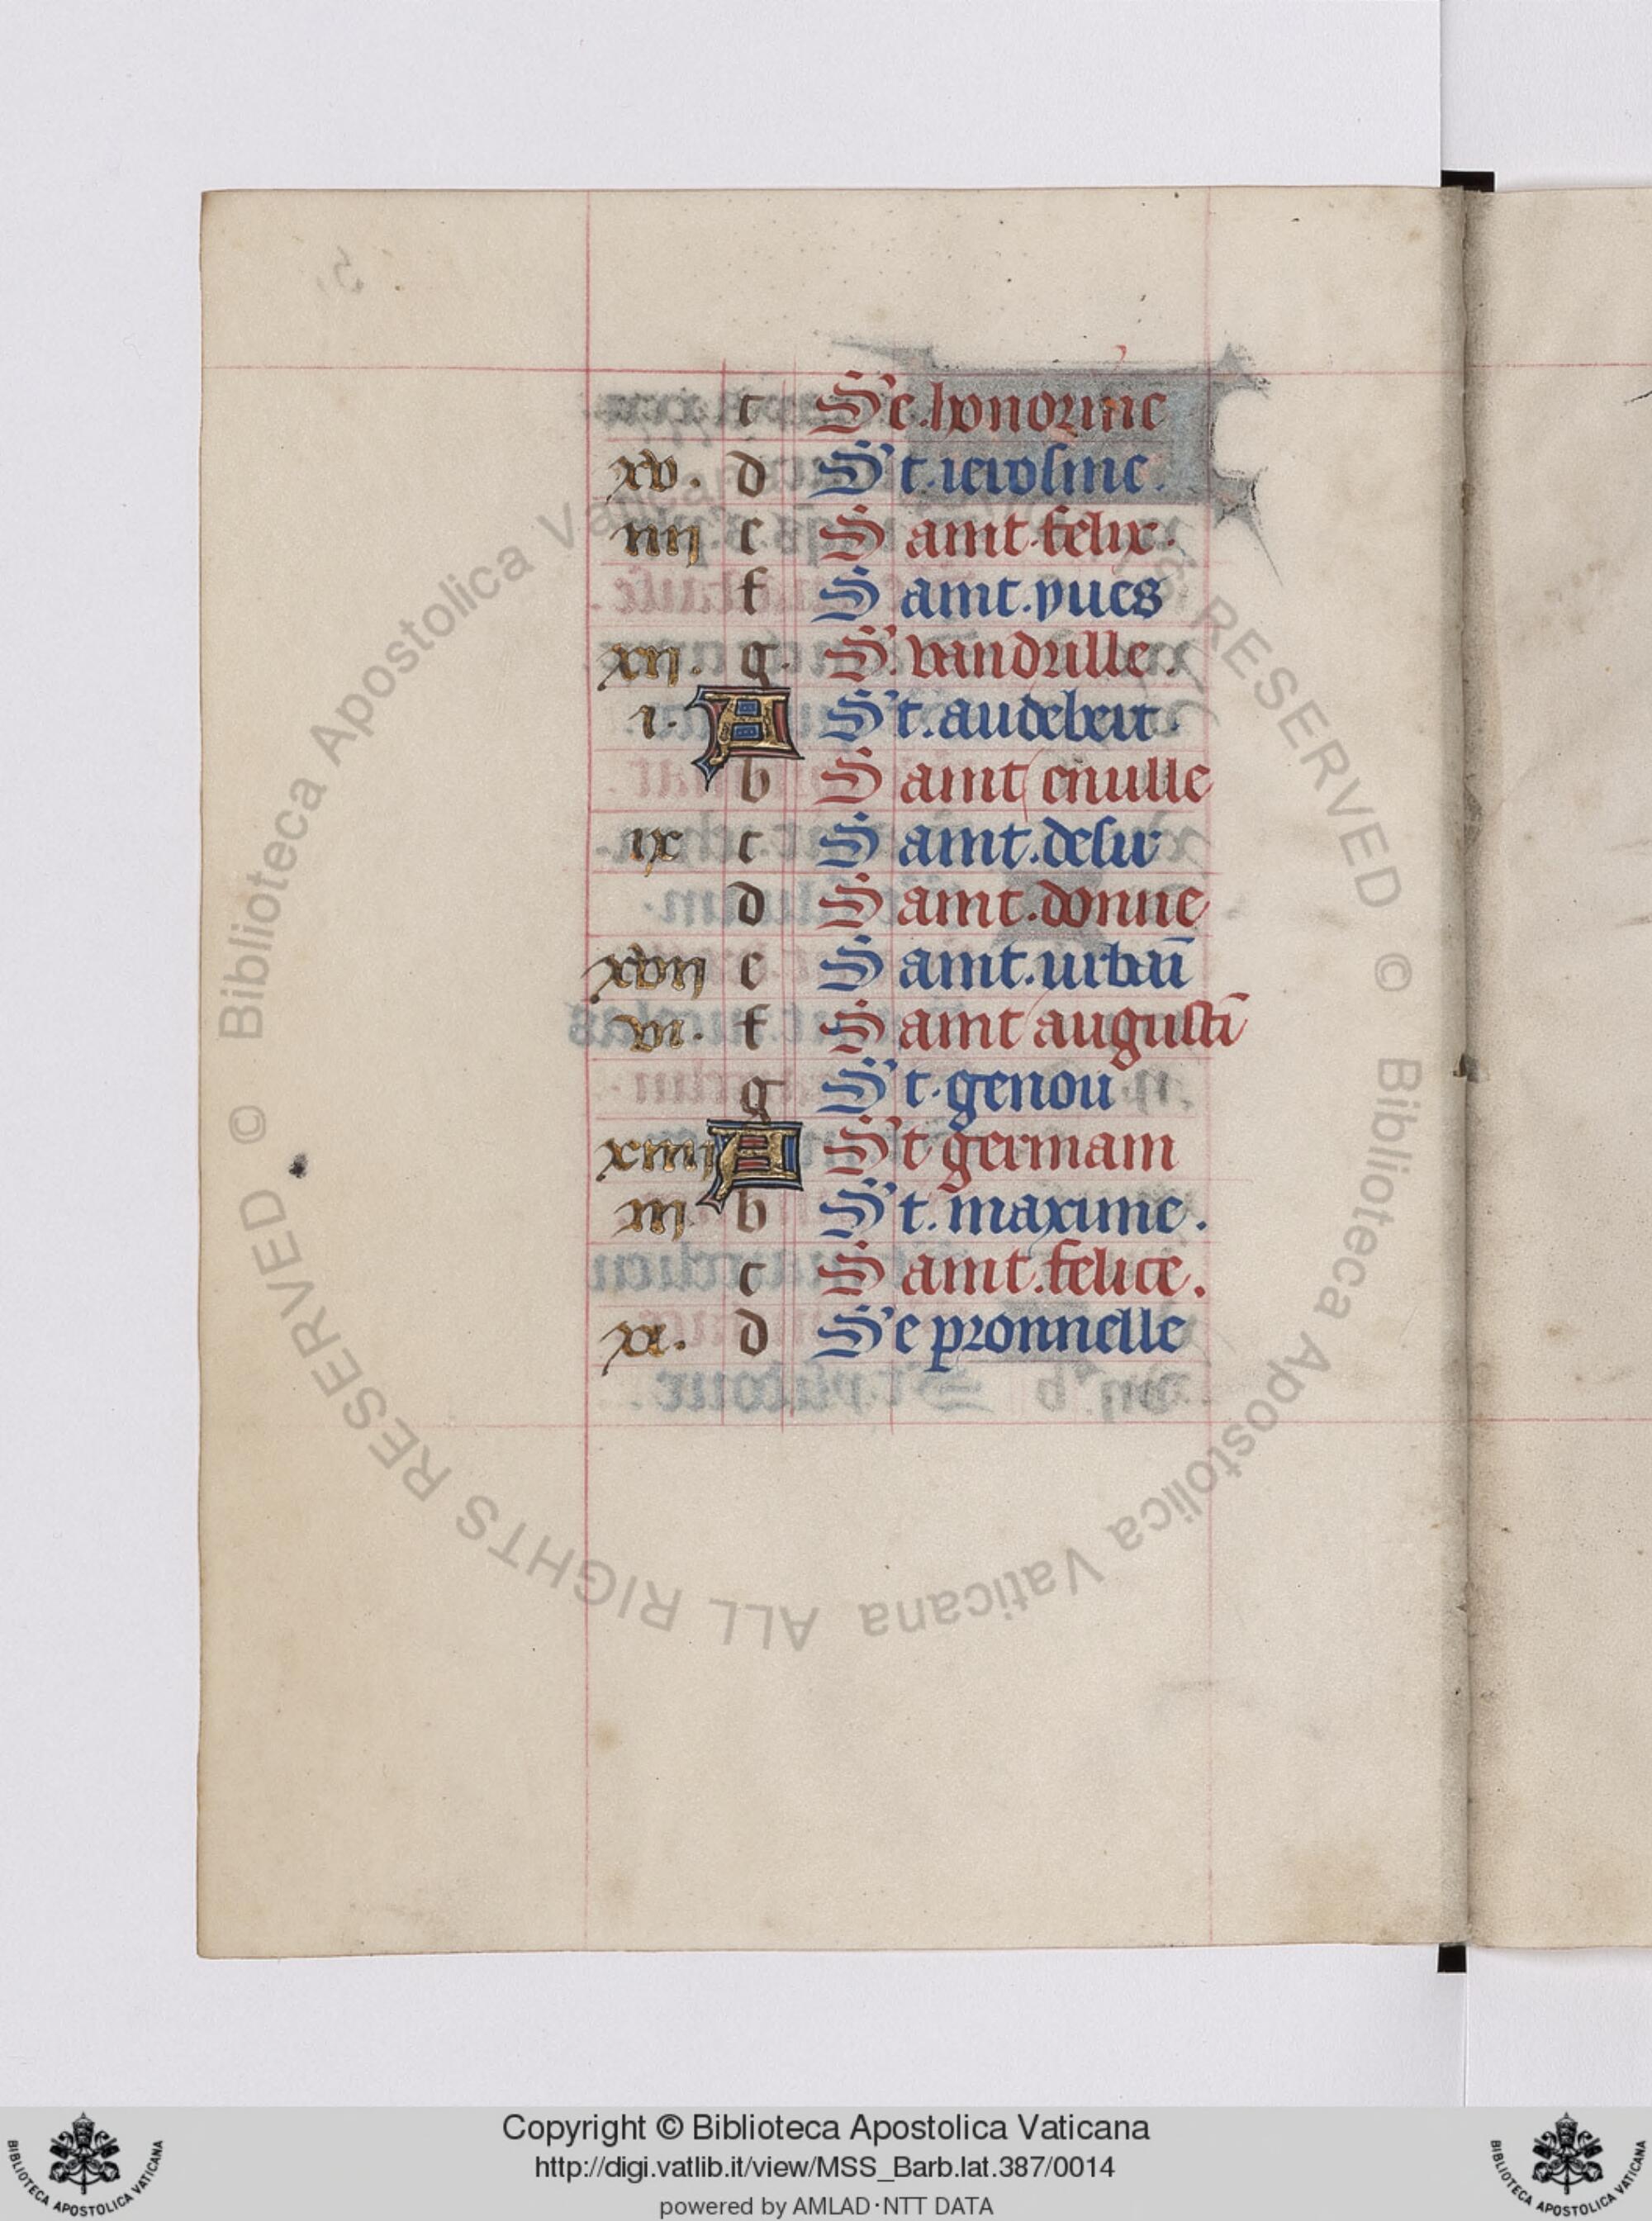 c Se. honorine
xv. d St. ierosme.
iiij c Saint. felix.
f Saint. yues
xij. g. S. vandrille.
i. A St. audebert.
b Saint emille
ix c Saint. desir
d Saint. donne
xvij e Saint. urbaī
vi. f Saint augustī
g St. genou
xiiij A St germain
iij b St. maxime.
c Saint. felice.
xi. d Se pronnelle
© Biblioteca Apostolica Vaticana ALL RIGHTS RESERVED © Biblioteca Apostolica Vaticana ALL RIGHTS RESERVED
Copyright © Biblioteca Apostolica Vaticana
http://digi.vatlib.it/view/MSS_Barb.lat.387/0014
powered by AMLAD·NTT DATA
BIBLIOTECA APOSTOLICA VATICANA
BIBLIOTECA APOSTOLICA VATICANA